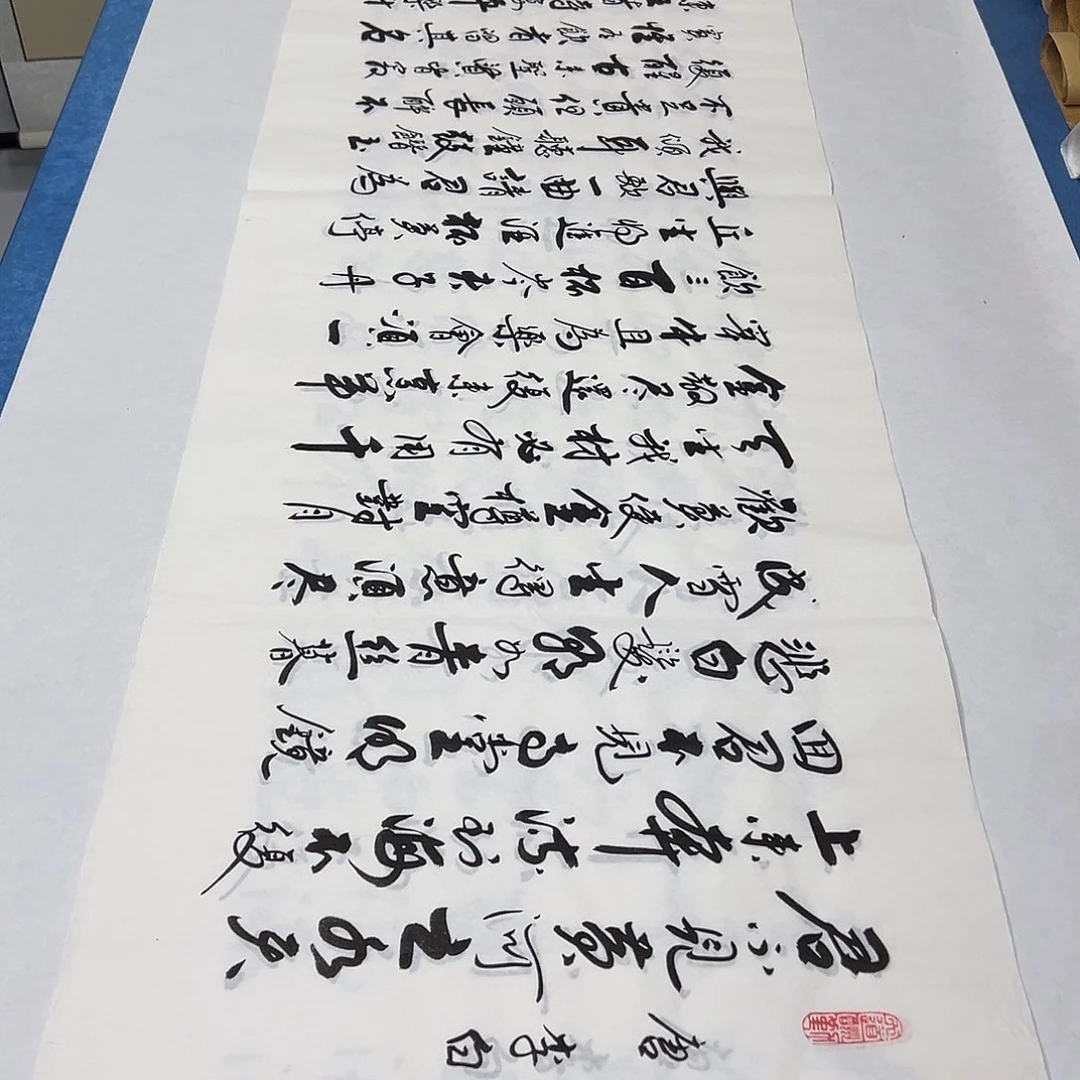 天道酬勤
唐李白
君不見黃河之水天
上来奔流到海不復
回君不見高堂明鏡
悲白髮朝如青丝暮
成雪人生得意須尽
歡莫使金樽空對月
天生我材必有用千
金散尽還復来烹羊
宰牛且為樂會須一
飲三百杯岑夫子丹
丘生將進酒杯莫停
與君歌一曲請君為
我傾耳聽鐘鼓饌玉
不足貴但願長醉不
復醒古来聖賢皆寂
寞惟有飲者留其名